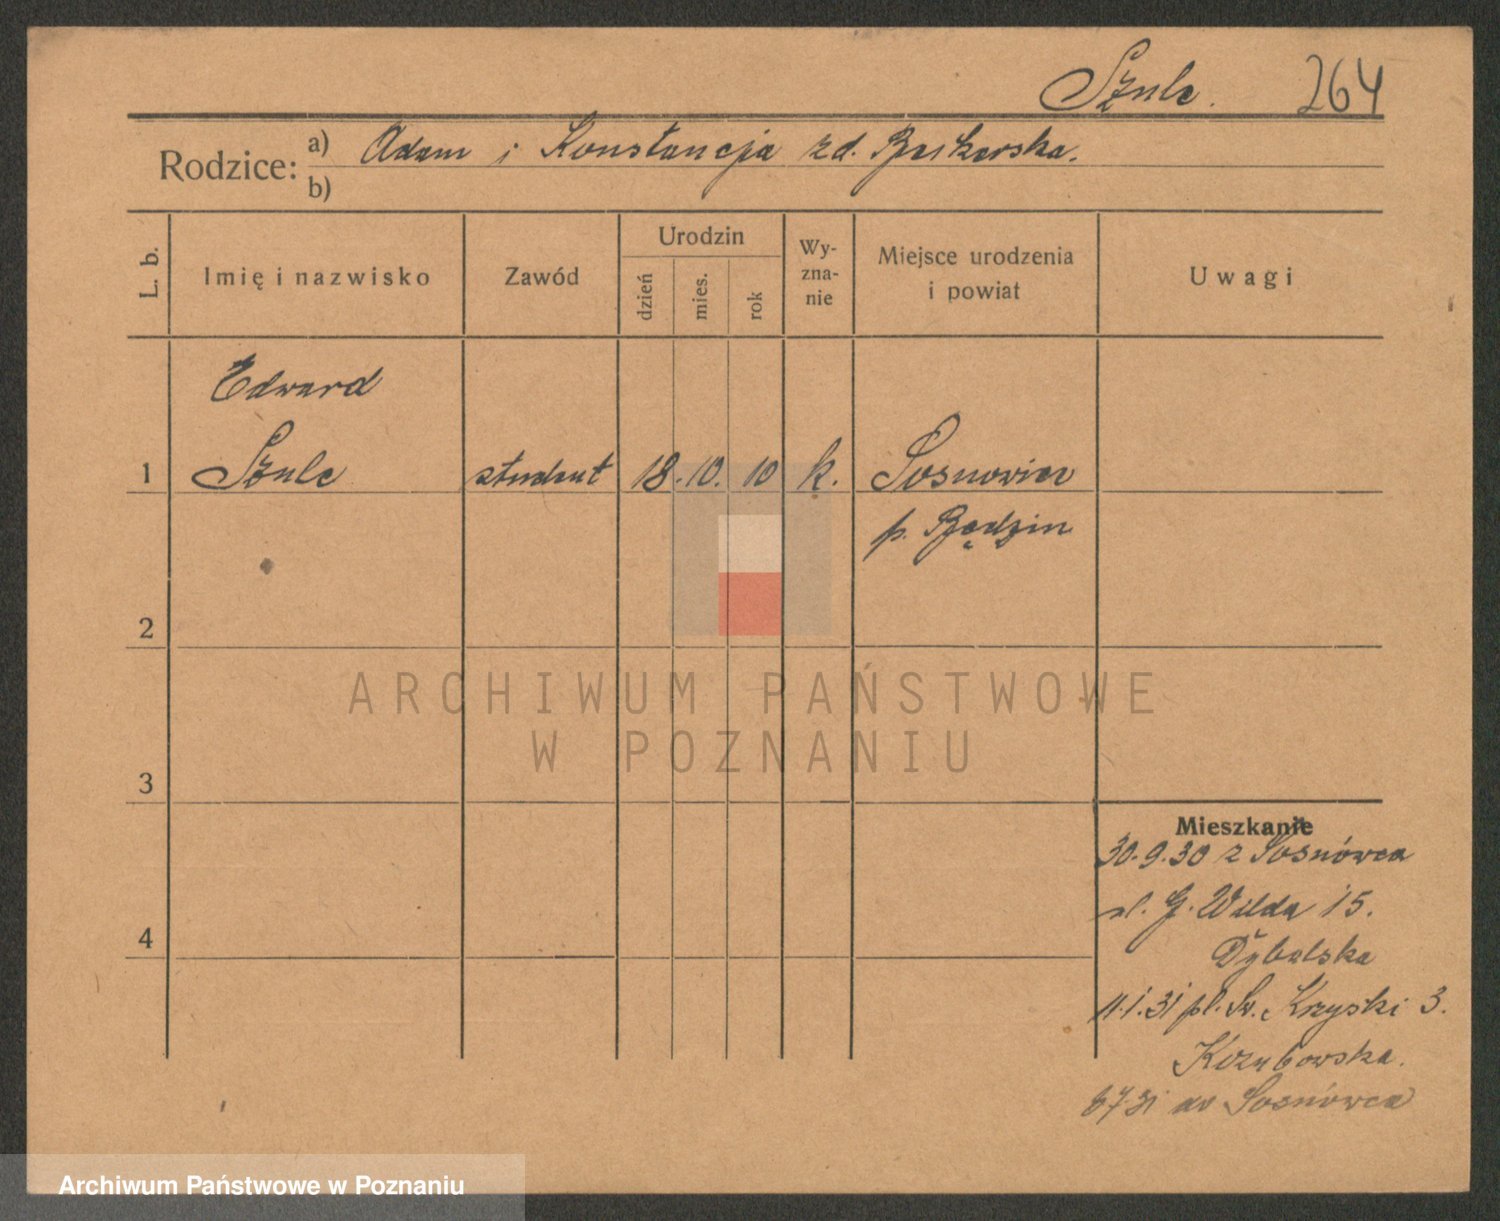 Szulc. 264
Rodzice: a) Adam i Konstancja zd.
b)
L. b.
Imię i nazwisko
Zawód
Urodzin
dzień
mies.
rok
Wy-
zna-
nie
Miejsce urodzenia
i powiat
Uwagi
Edward
1 Szulc student 18. 10. 10 k. Sosnowiec
p. Będzin
2
3
4
ARCHIWUM PAŃSTWOWE
W POZNANIU
Mieszkanie
30.9.30 z Sosnówca
ul. G. Wilda 15.
Dybalska
11.1.31 pl. Św. Krzyski 3.
Kozubowska.
6 7 31 do Sosnówca
Archiwum Państwowe w Poznaniu